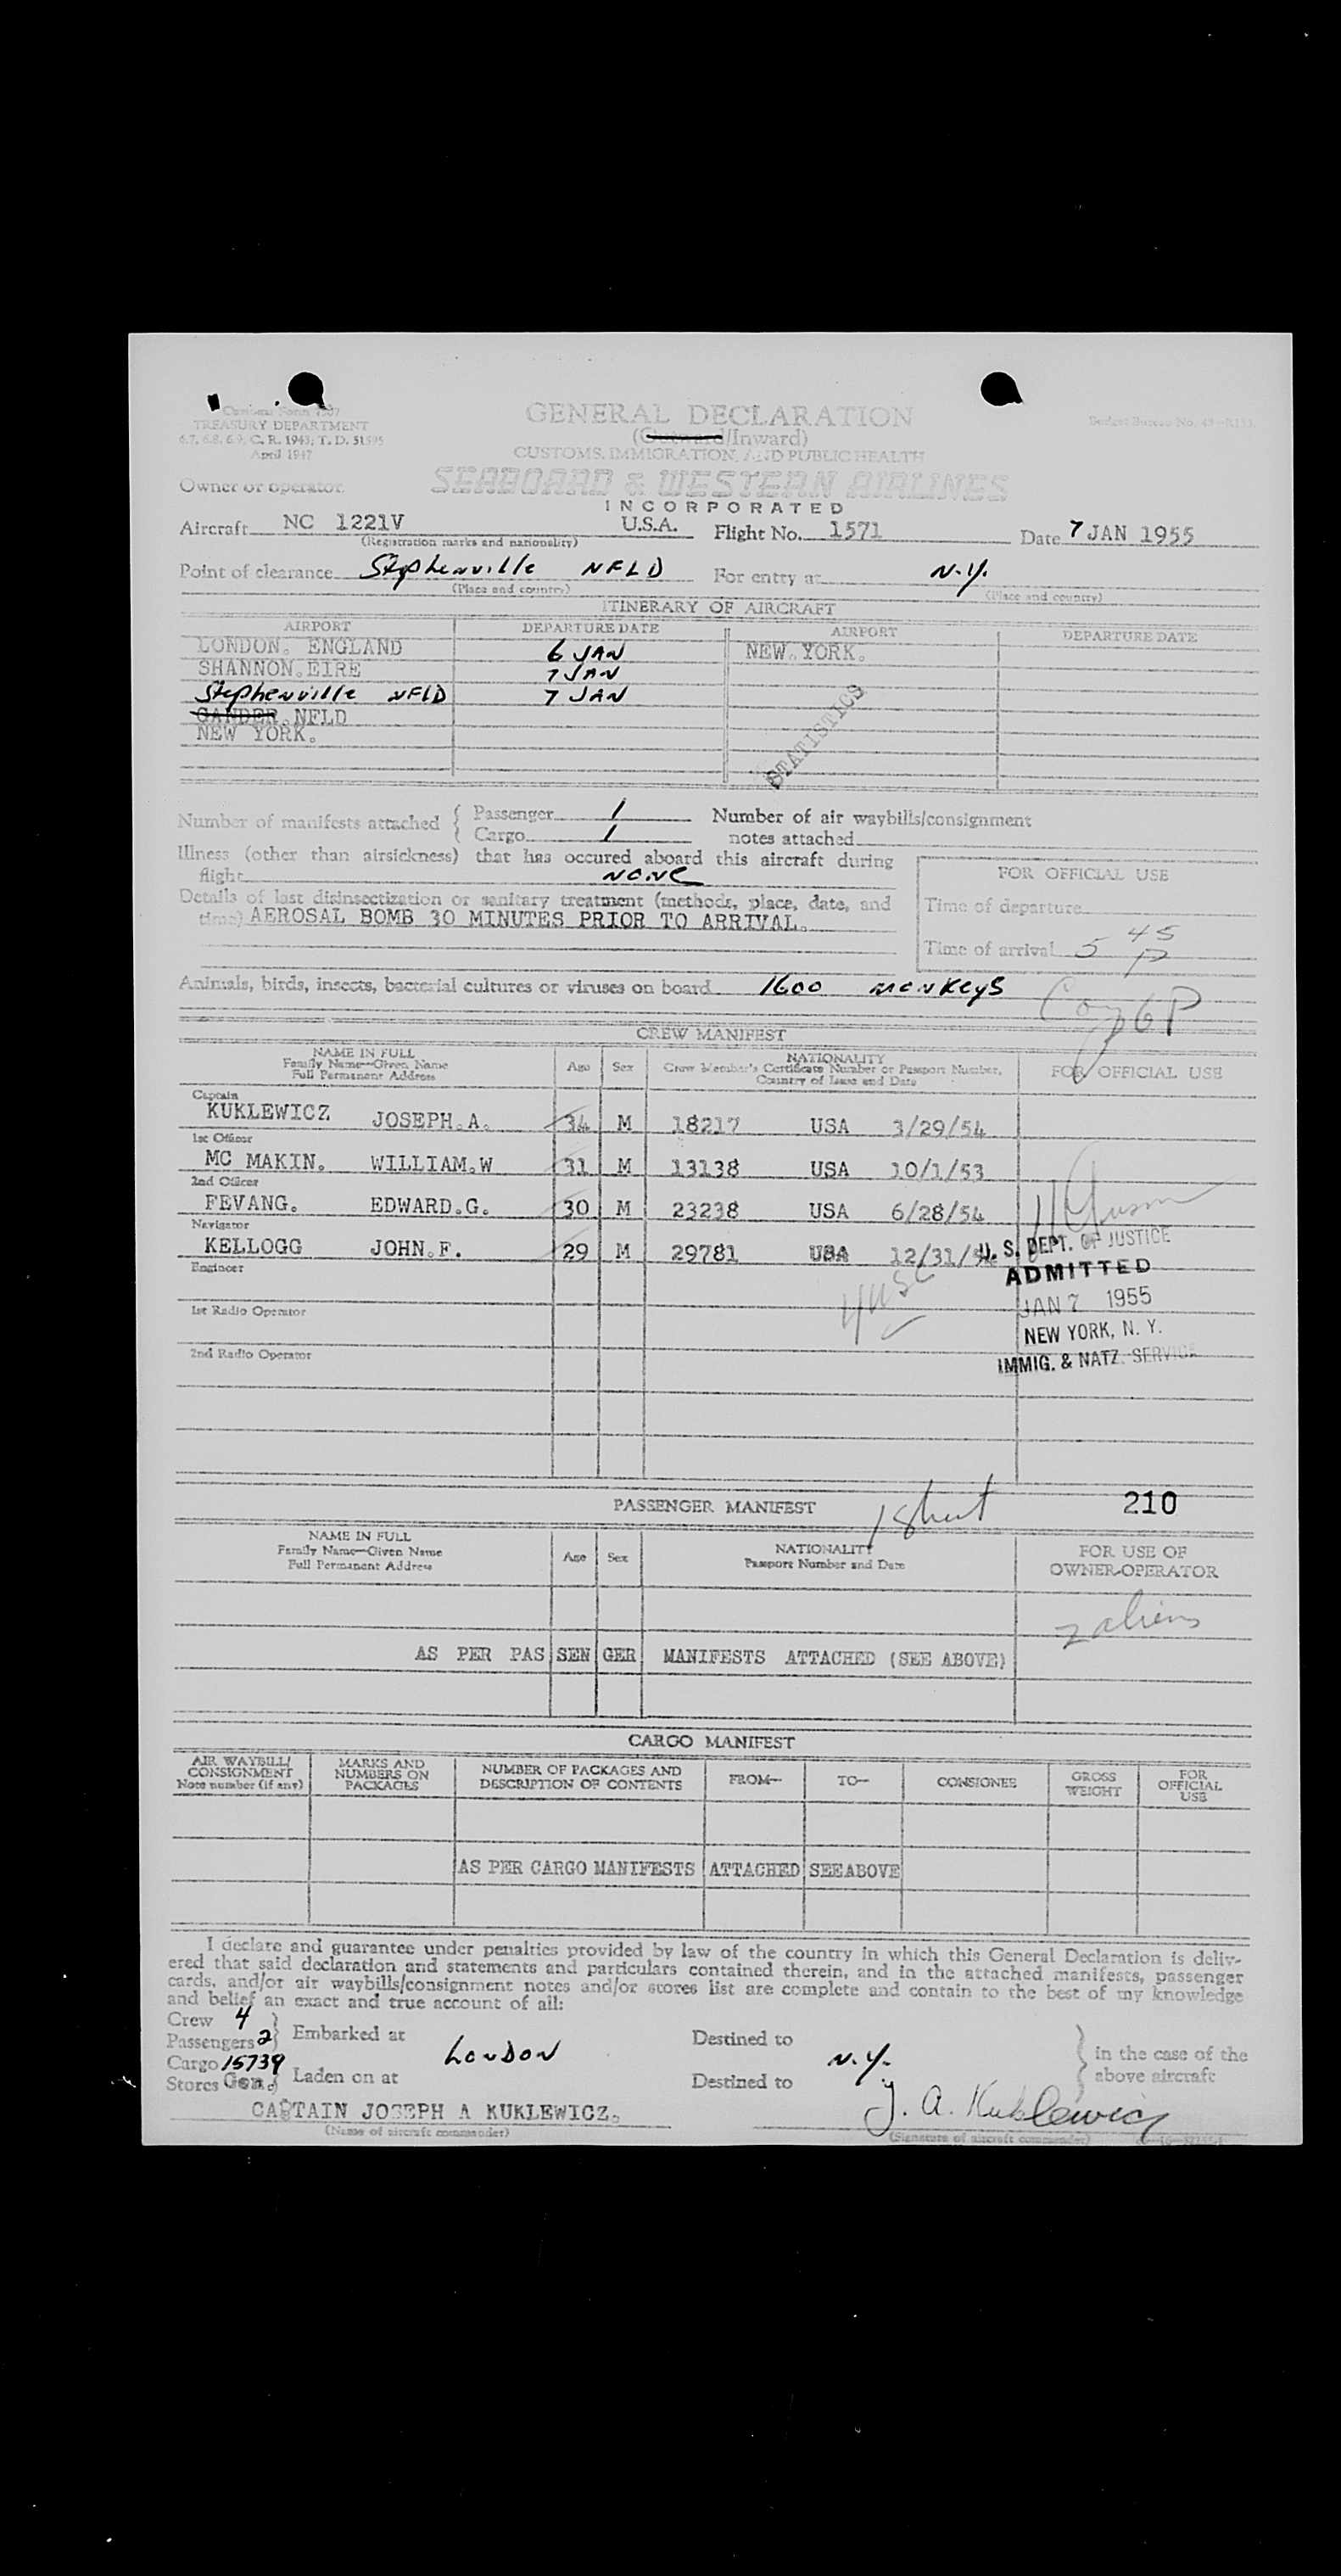 Customs Form 7507
TREASURY DEPARTMENT
6.7, 6.8, 6.9, C. R. 1943; T. D. 51595
April 1947
GENERAL DECLARATION
(Outward/Inward)
CUSTOMS, IMMIGRATION, AND PUBLIC HEALTH
Budget Bureau No.
Owner or operator
SEABOARD & WESTERN AIRLINES
INCORPORATED
Aircraft NC 1221V U.S.A. Flight No. 1571 Date 7 JAN 1955
(Registration marks and nationality)
Point of clearance Stephenville NFLD For entry at N.Y.
(Place and country) (Place and country)
ITINERARY OF AIRCRAFT
AIRPORT DEPARTURE DATE AIRPORT DEPARTURE DATE
LONDON. ENGLAND 6 JAN NEW. YORK.
SHANNON.EIRE 7 JAN
Stephenville NFLD 7 JAN
GANDER.NFLD
NEW YORK.
STATISTICS
Number of manifests attached { Passenger 1 Number of air waybills/consignment
Cargo 1 notes attached
Illness (other than airsickness) that has occured aboard this aircraft during
flight NONE
FOR OFFICIAL USE
Details of last disinsectization or sanitary treatment (methods, place, date, and
time) AEROSAL BOMB 30 MINUTES PRIOR TO ARRIVAL.
Time of departure
Time of arrival 5 45 P
Animals, birds, insects, bacterial cultures or viruses on board 1600 MONKEYS
6P
CREW MANIFEST
NAME IN FULL
Family Name—Given Name
Full Permanent Address
Age Sex
NATIONALITY
Crew Member's Certificate Number or Passport Number,
Country of Issue and Date
FOR OFFICIAL USE
Captain
KUKLEWICZ JOSEPH.A. 34 M 18217 USA 3/29/54
1st Officer
MC MAKIN. WILLIAM.W 31 M 13138 USA 10/1/53
2nd Officer
FEVANG. EDWARD.G. 30 M 23238 USA 6/28/54
Navigator
KELLOGG JOHN.F. 29 M 29781 USA 12/31/54
Engineer
1st Radio Operator
2nd Radio Operator
4 USC
U. S. DEPT. OF JUSTICE
ADMITTED
JAN 7 1955
NEW YORK, N. Y.
IMMIG. & NATZ. SERVICE
PASSENGER MANIFEST 1 Sheet 210
NAME IN FULL
Family Name—Given Name
Full Permanent Address
Age Sex
NATIONALITY
Passport Number and Date
FOR USE OF
OWNER-OPERATOR
2 aliens
AS PER PAS SEN GER MANIFESTS ATTACHED (SEE ABOVE)
CARGO MANIFEST
AIR WAYBILL/
CONSIGNMENT
Note number (if any)
MARKS AND
NUMBERS ON
PACKAGES
NUMBER OF PACKAGES AND
DESCRIPTION OF CONTENTS
FROM— TO— CONSIGNEE
GROSS
WEIGHT
FOR
OFFICIAL
USE
AS PER CARGO MANIFESTS ATTACHED SEEABOVE
I declare and guarantee under penalties provided by law of the country in which this General Declaration is deliv-
ered that said declaration and statements and particulars contained therein, and in the attached manifests, passenger
cards, and/or air waybills/consignment notes and/or stores list are complete and contain to the best of my knowledge
and belief an exact and true account of all:
Crew 4
Passengers 2 } Embarked at LONDON Destined to N.Y. } in the case of the
Cargo 15739
Stores Gen. } Laden on at Destined to above aircraft
CAPTAIN JOSEPH A KUKLEWICZ. J. A. Kuklewicz
(Name of aircraft commander) (Signature of aircraft commander)